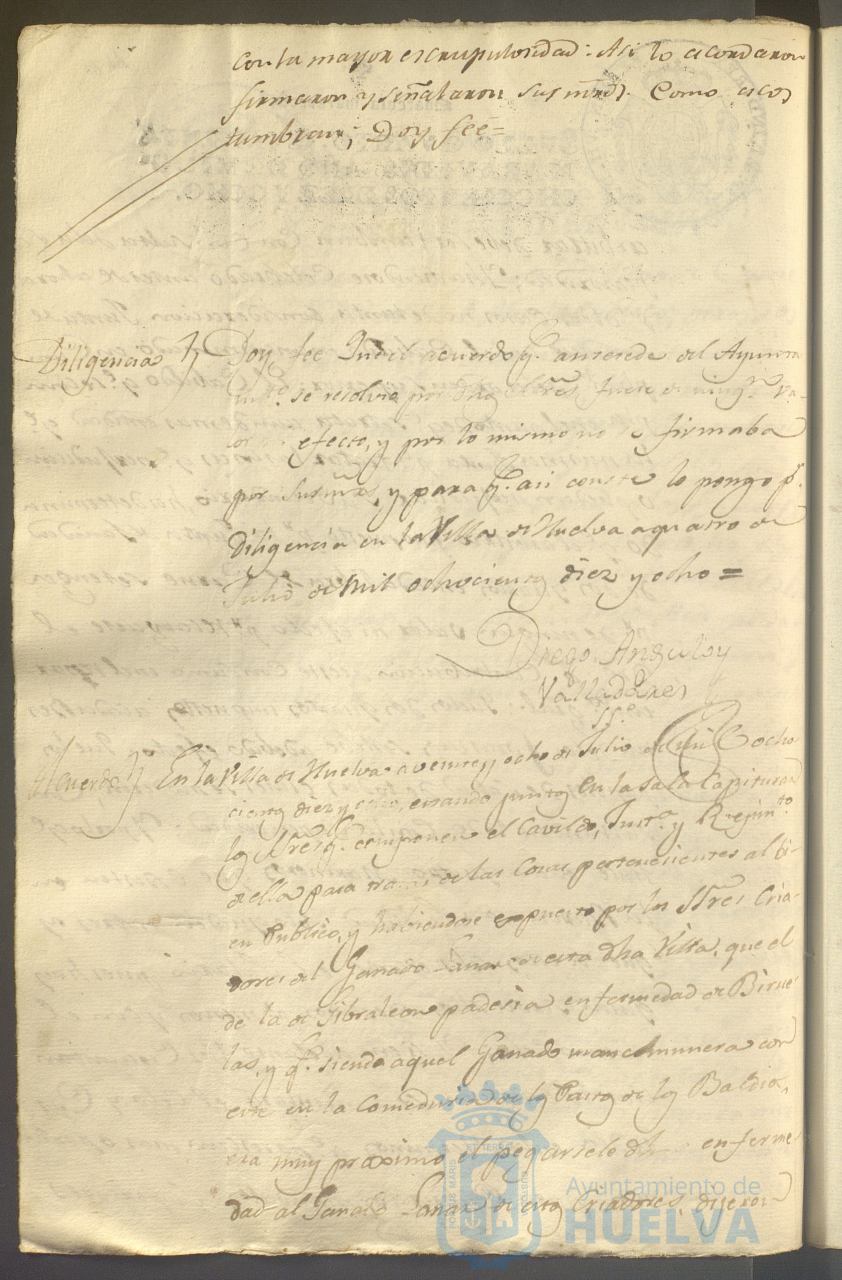 con la mayor escrupulosidad: Asi lo acordaron
firmaron y señalaron sus mrds. Como acos
tumbran; Doy feé=
Diligencia Doy fee Qe. en el acuerdo q. antesede del Ayunta
mto. se resolvio por dhos Sres. fuese de ningn. va-
lor ni efecto, y por lo mismo no se firmaba
por sus mrds, y para q. asi conste lo pongo pr.
Diligencia en la Villa de Huelva a quatro de
Julio de Mil ochocientos diez y ocho =
Diego Angulo y
Valladares
SSo.
Acuerdo En la Villa de Huelva a veinte y ocho de Julio de Mil ocho
cientos diez y ocho, estando juntos en la Sala Capitular
los Sres q. componen el Cavildo, Justa. y Regimto.
de ella para tratar de las Cosas pertenesientes al bi-
en Publico, y habiendose expuesto por los SSres Cria-
dores del Ganado Lanar de esta dha Villa, que el
de la de Gibraleon padesia enfermedad de Birue
las, y q. siendo aquel Ganado mancomunero con
este en la Comeduria de los Pastos de los Baldios,
era muy proximo el pegarsele dha enferme
dad al Ganado Lanar de estos Criadores, dijeron
Ayuntamiento de
HUELVA